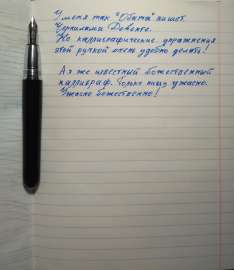 У меня так "Обыта" пишет.
Чернилами Девенте.
Но каллиграфические упражнения
этой ручкой очень удобно делать!
Аз же известный божественный
каллиграф. Только пишу ужасно.
Ужасно божественно!